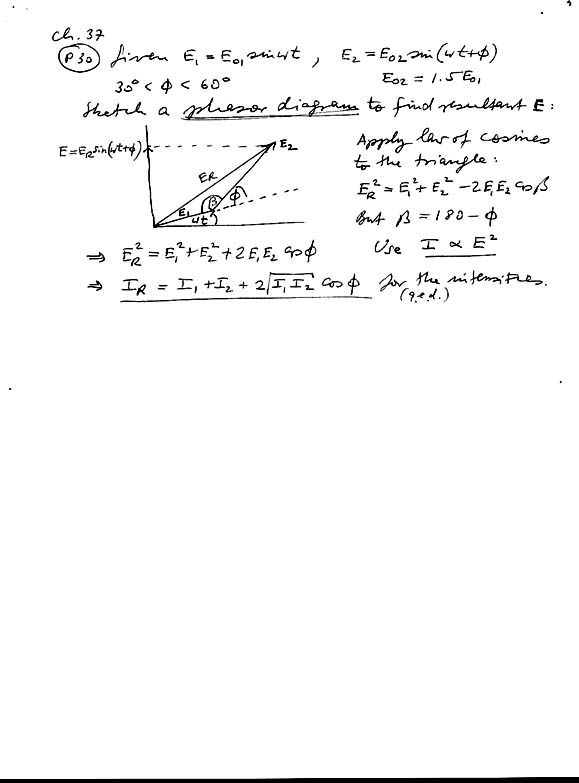 Ch. 37
P30 Given E₁ = E₀₁ sin ωt , E₂ = E₀₂ sin(ωt+ϕ)
30° < ϕ < 60° E₀₂ = 1.5E₀₁
Sketch a phasor diagram to find resultant E :
E = E_R sin(ωt+ϕ)
E₂
E_R
E₁
β
ϕ
ωt
Apply law of cosines
to the triangle:
E_R² = E₁² + E₂² - 2E₁E₂ cos β
But β = 180 - ϕ
⇒ E_R² = E₁² + E₂² + 2E₁E₂ cos ϕ Use I ∝ E²
⇒ I_R = I₁ + I₂ + 2√I₁I₂ cos ϕ for the intensities.
(q.e.d.)